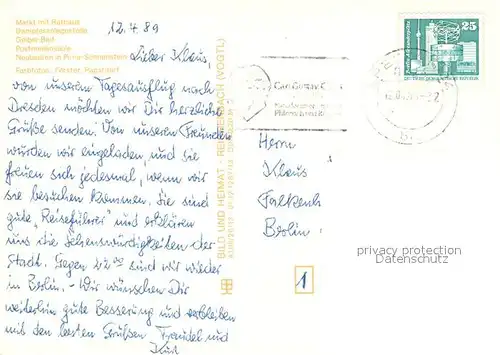 Markt mit Rathaus
Dampferanlegestelle
Geibel-Bad
Postmeilensäule
Neubauten in Pirna-Sonnenstein
Farbfotos: Förster, Papstdorf
12.4.89
Lieber Klaus,
von unserem Tagesausflug nach
Dresden möchten wir Dir herzliche
Grüße senden. Von unseren Freunden
wurden wir eingeladen, und sie
freuen sich jedesmal, wenn wir
sie besuchen kommen. Sie sind
gute "Reiseführer" und erklären
uns die Sehenswürdigkeiten der
Stadt. Gegen 22⁰⁰ sind wir wieder
in Berlin. - Wir wünschen Dir
weiterhin gute Besserung und verbleiben
mit den besten Grüßen Traudel und
Kurt
BILD UND HEIMAT · REICHENBACH (VOGTL)
Carl Gustav
25
Herrn
Klaus
Falkenh
Berlin
1
privacy protection
Datenschutz